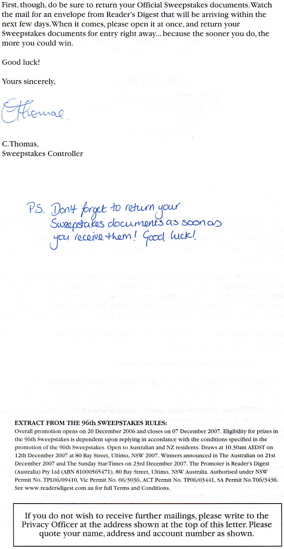 First, though, do be sure to return your Official Sweepstakes documents. Watch
the mail for an envelope from Reader's Digest that will be arriving within the
next few days. When it comes, please open it at once, and return your
Sweepstakes documents for entry right away... because the sooner you do, the
more you could win.
Good luck!
Yours sincerely,
CThomas.
C.Thomas,
Sweepstakes Controller
P.S. Don't forget to return your
Sweepstakes documents as soon as
you receive them! Good luck!
EXTRACT FROM THE 96th SWEEPSTAKES RULES:
Overall promotion opens on 20 December 2006 and closes on 07 December 2007. Eligibility for prizes in
the 96th Sweepstakes is dependent upon replying in accordance with the conditions specified in the
promotion of the 96th Sweepstakes. Open to Australian and NZ residents. Draws at 10.30am AEDST on
12th December 2007 at 80 Bay Street, Ultimo, NSW 2007. Winners announced in The Australian on 21st
December 2007 and The Sunday Star-Times on 23rd December 2007. The Promoter is Reader's Digest
(Australia) Pty Ltd (ABN 81000565471), 80 Bay Street, Ultimo, NSW Australia. Authorised under NSW
Permit No. TPL06/09410, Vic Permit No. 06/3036, ACT Permit No. TP06/03441, SA Permit No.T06/3436.
See www.readersdigest.com.au for full Terms and Conditions.
If you do not wish to receive further mailings, please write to the
Privacy Officer at the address shown at the top of this letter. Please
quote your name, address and account number as shown.